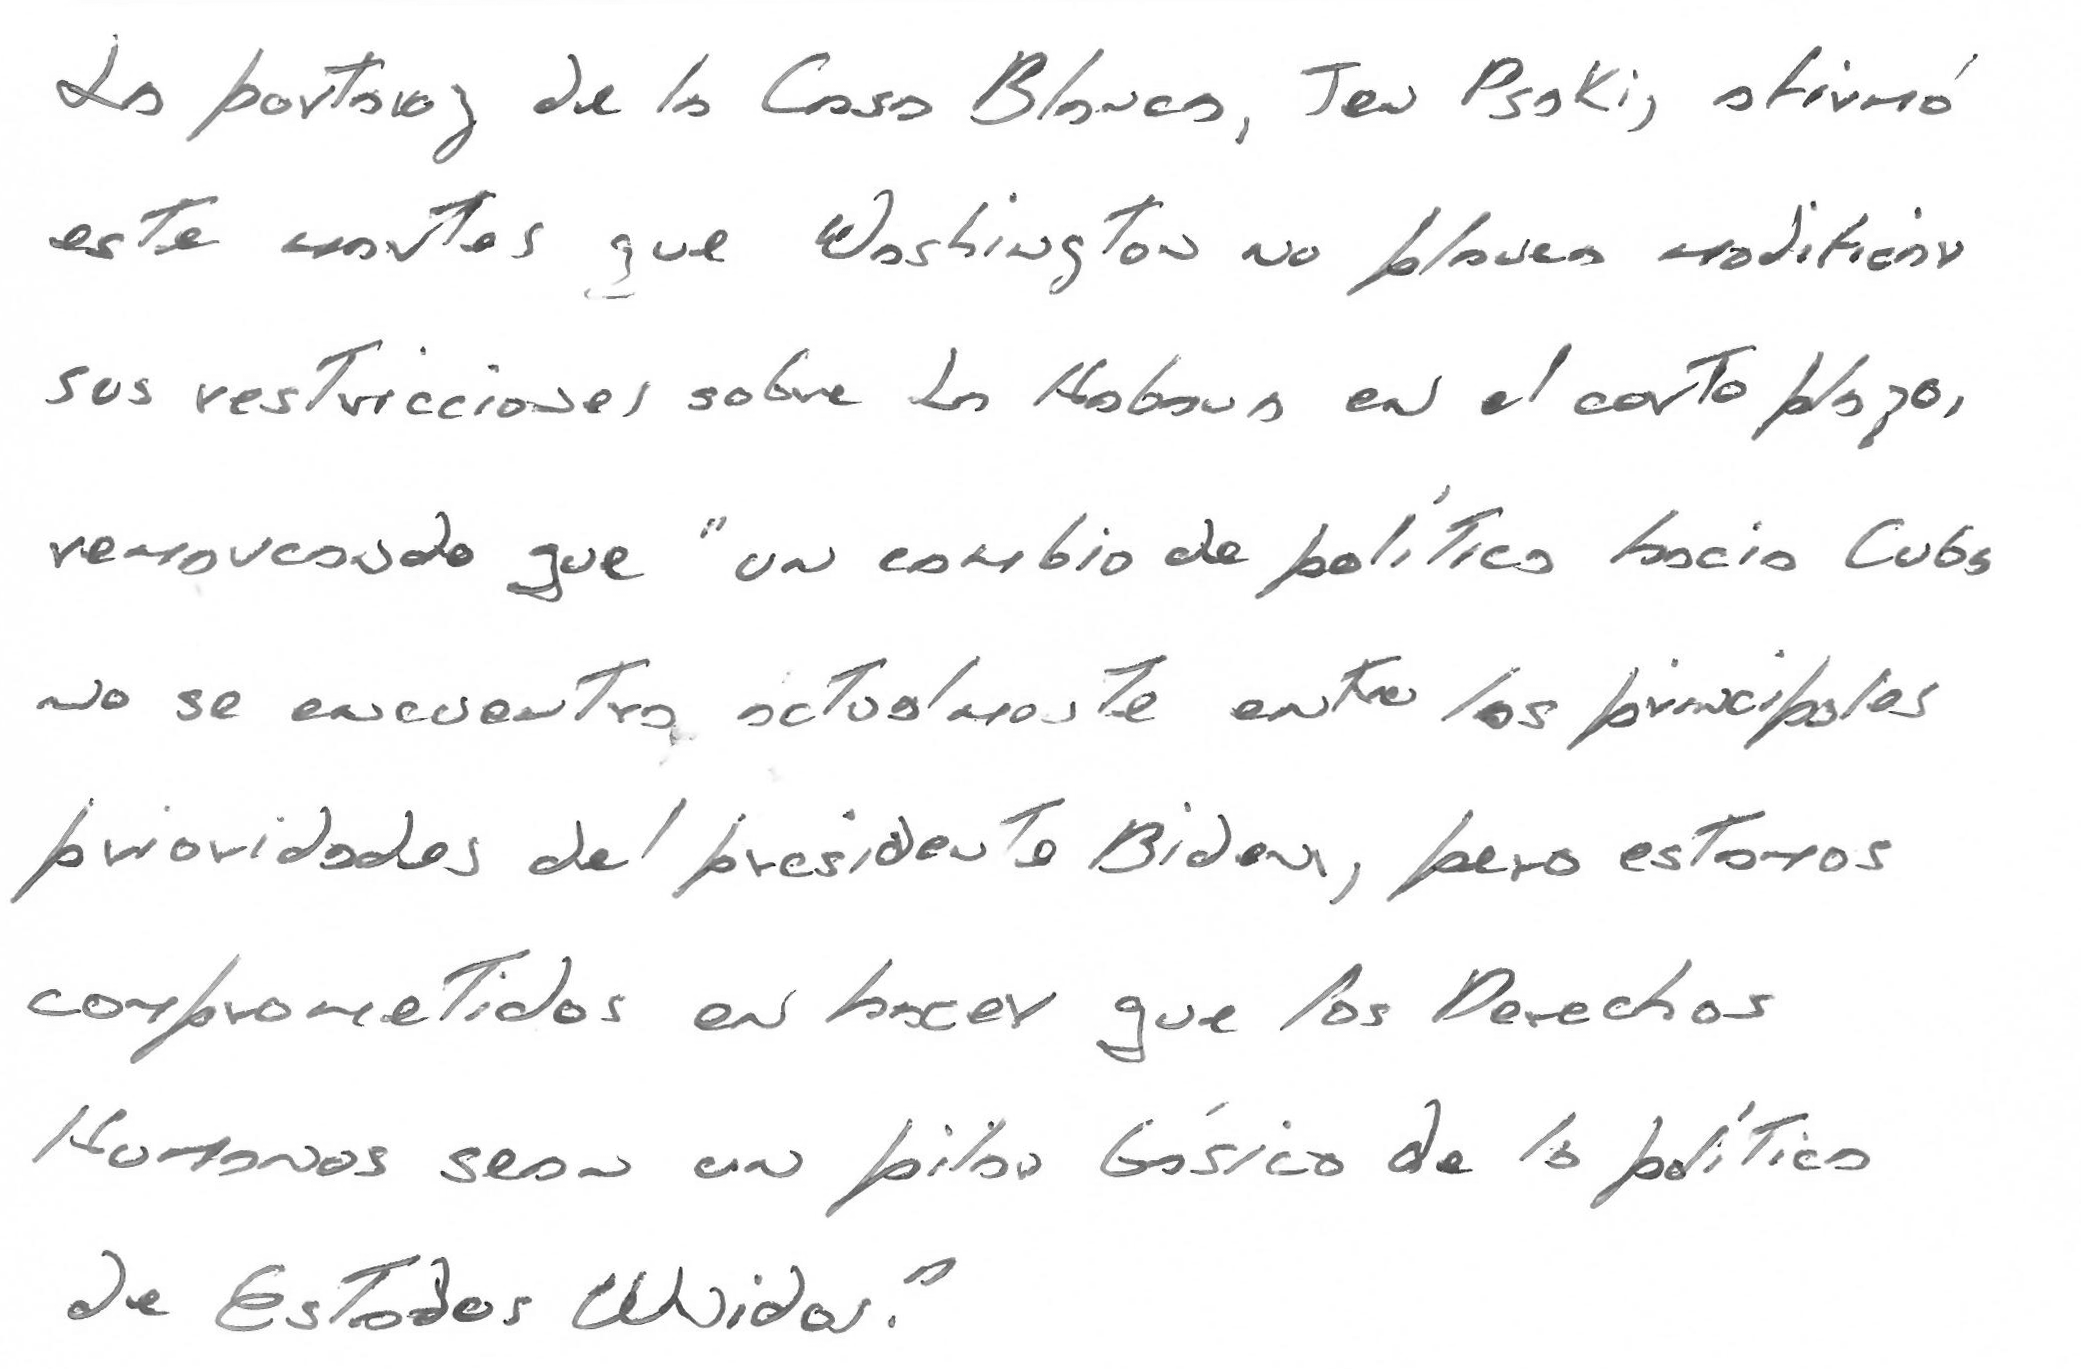 La portavoz de la Casa Blanca, Jen Psaki, afirmó
este martes que Washington no planea modificar
sus restricciones sobre La Habana en el corto plazo,
remarcando que "un cambio de política hacia Cuba
no se encuentra actualmente entre las principales
prioridades del presidente Biden, pero estamos
comprometidos en hacer que los Derechos
Humanos sean un pilar básico de la política
de Estados Unidos."